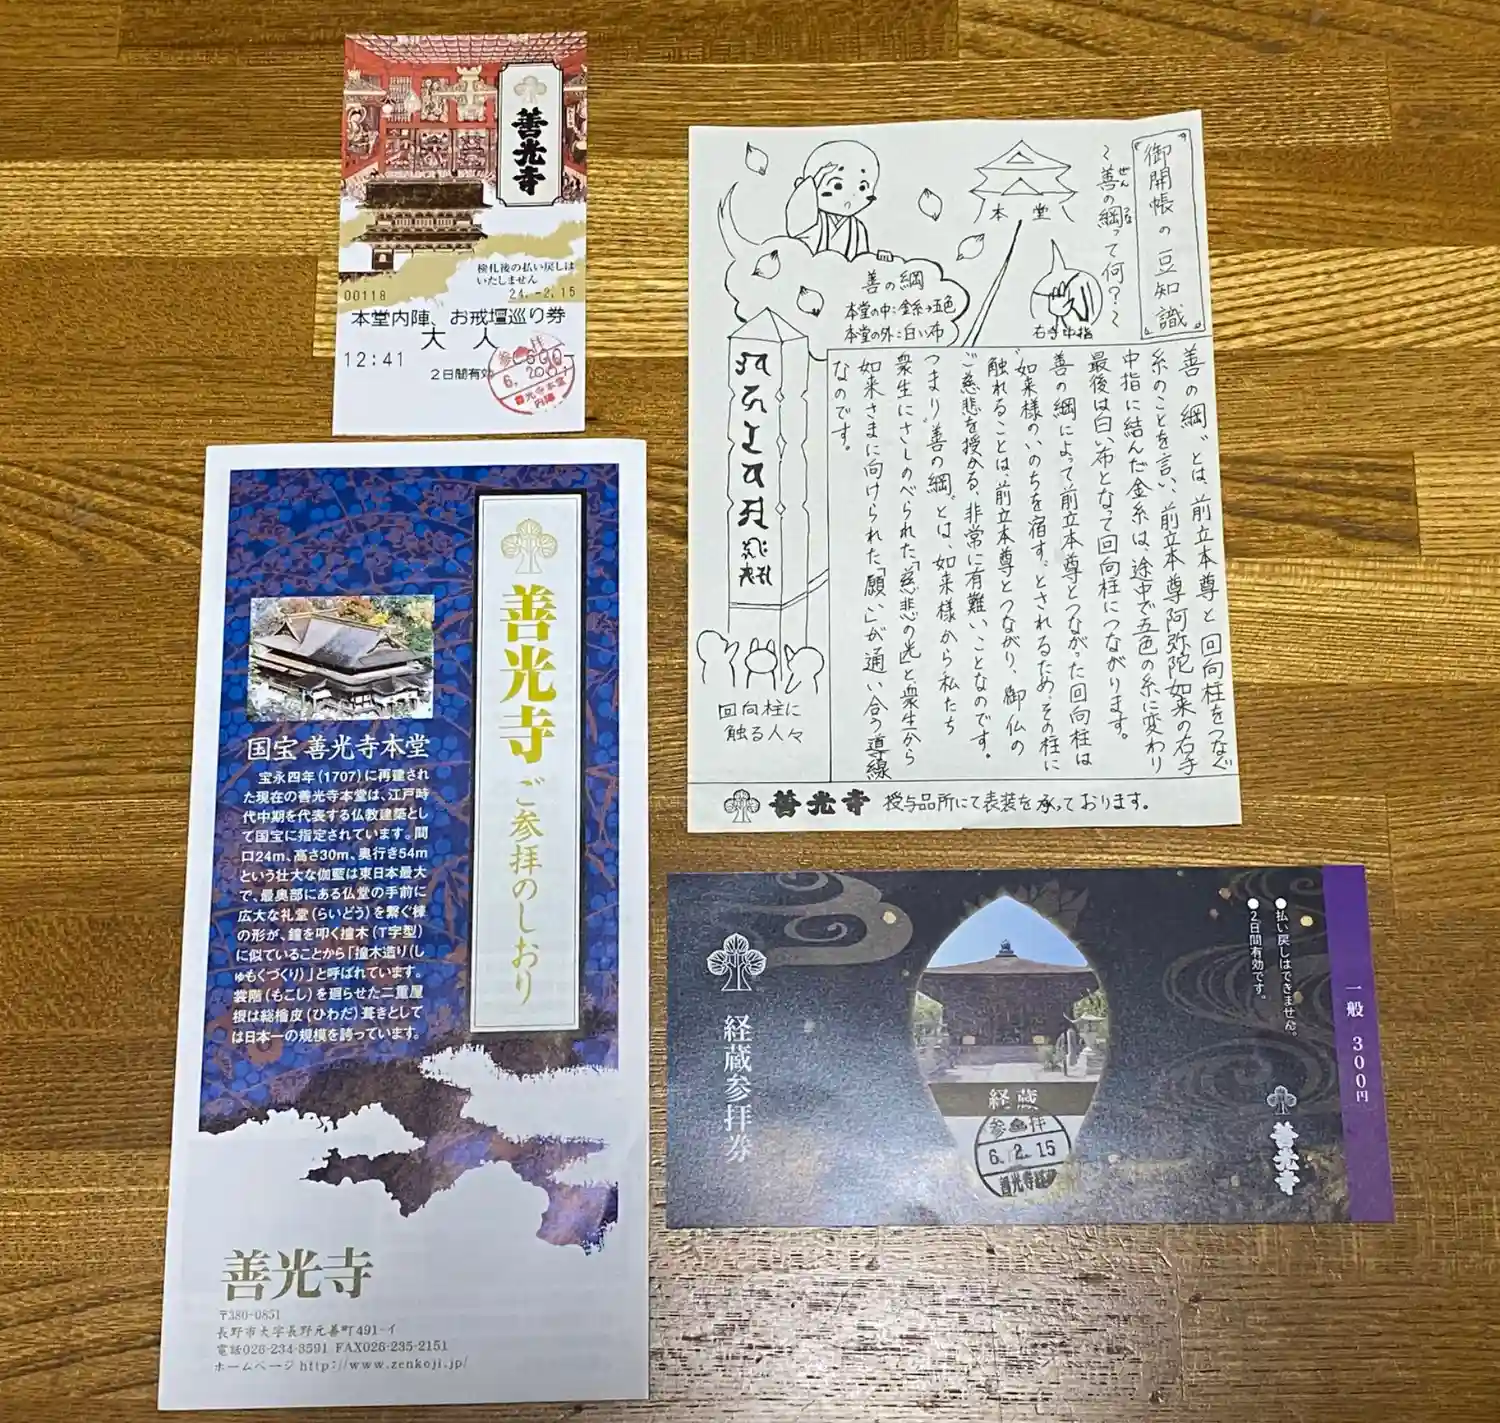 善光寺
検札後の払い戻しは
いたしません
00118
24.-2.15
本堂内陣、お戒壇巡り券
大人
12:41
2日間有効
善光寺本堂
内陣
『御開帳の豆知識』
〜善の綱って何?〜
ぜん
つな
本堂
善の綱
本堂の中:金糸→五色
本堂の外:白い布
右手中指
“善の綱”とは、前立本尊と回向柱をつなぐ
糸のことを言い、前立本尊阿弥陀如来の右手
中指に結んだ金糸は、途中で五色の糸に変わり
最後は白い布となって回向柱につながります。
善の綱によって前立本尊とつながった回向柱は
“如来様のいのちを宿す”とされるため、その柱に
触れることは、前立本尊とつながり、御仏の
ご慈悲を授かる、非常に有難いことなのです。
つまり“善の綱”とは、如来様から私たち
衆生にさしのべられた「慈悲の光」と衆生から
如来さまに向けられた「願い」が通い合う導線
なのです。
回向柱に
触る人々
善光寺 授与品所にて表装を承っております。
善光寺ご参拝のしおり
国宝 善光寺本堂
宝永四年(1707)に再建され
た現在の善光寺本堂は、江戸時
代中期を代表する仏教建築とし
て国宝に指定されています。間
口24m、高さ30m、奥行き54m
という壮大な伽藍は東日本最大
で、最奥部にある仏堂の手前に
広大な礼堂(らいどう)を繋ぐ棟
の形が、鐘を叩く撞木(T字型)
に似ていることから「撞木造り(し
ゅもくづくり)」と呼ばれています。
裳階(もこし)を廻らせた二重屋
根は総檜皮(ひわだ)葺きとして
は日本一の規模を誇っています。
善光寺
〒380-0851
長野市大字長野元善町491-イ
電話026-234-3591 FAX026-235-2151
ホームページ http://www.zenkoji.jp/
経蔵参拝券
経蔵
6.2.15
●払い戻しはできません。
●2日間有効です。
善光寺
一般 300円